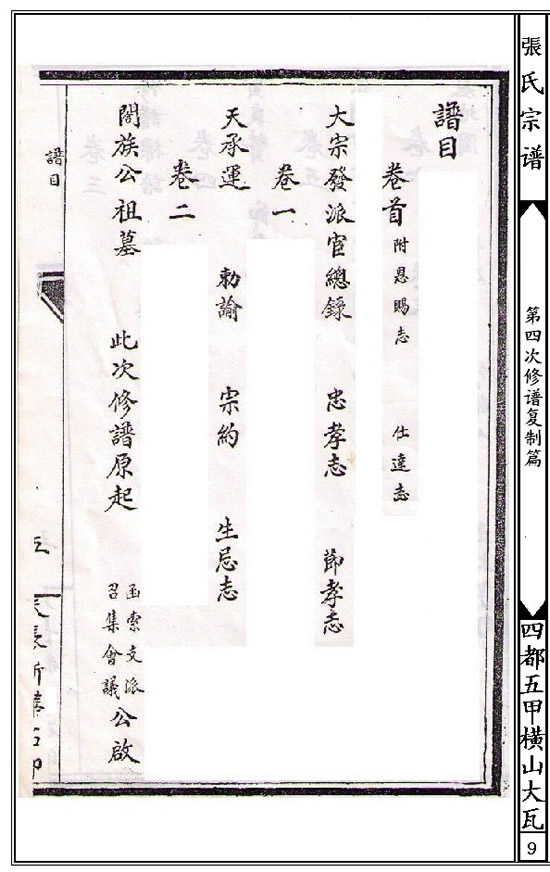 張氏宗谱
第四次修谱复制篇
四都五甲横山大瓦
9
譜目
卷首 附恩賜志 仕達志
大宗發派官總錄 忠孝志 節孝志
卷一
天承運 勅諭 宗約 生忌志
卷二
闔族公祖墓 此次修譜原起 函索支派召集會議公啟
譜目